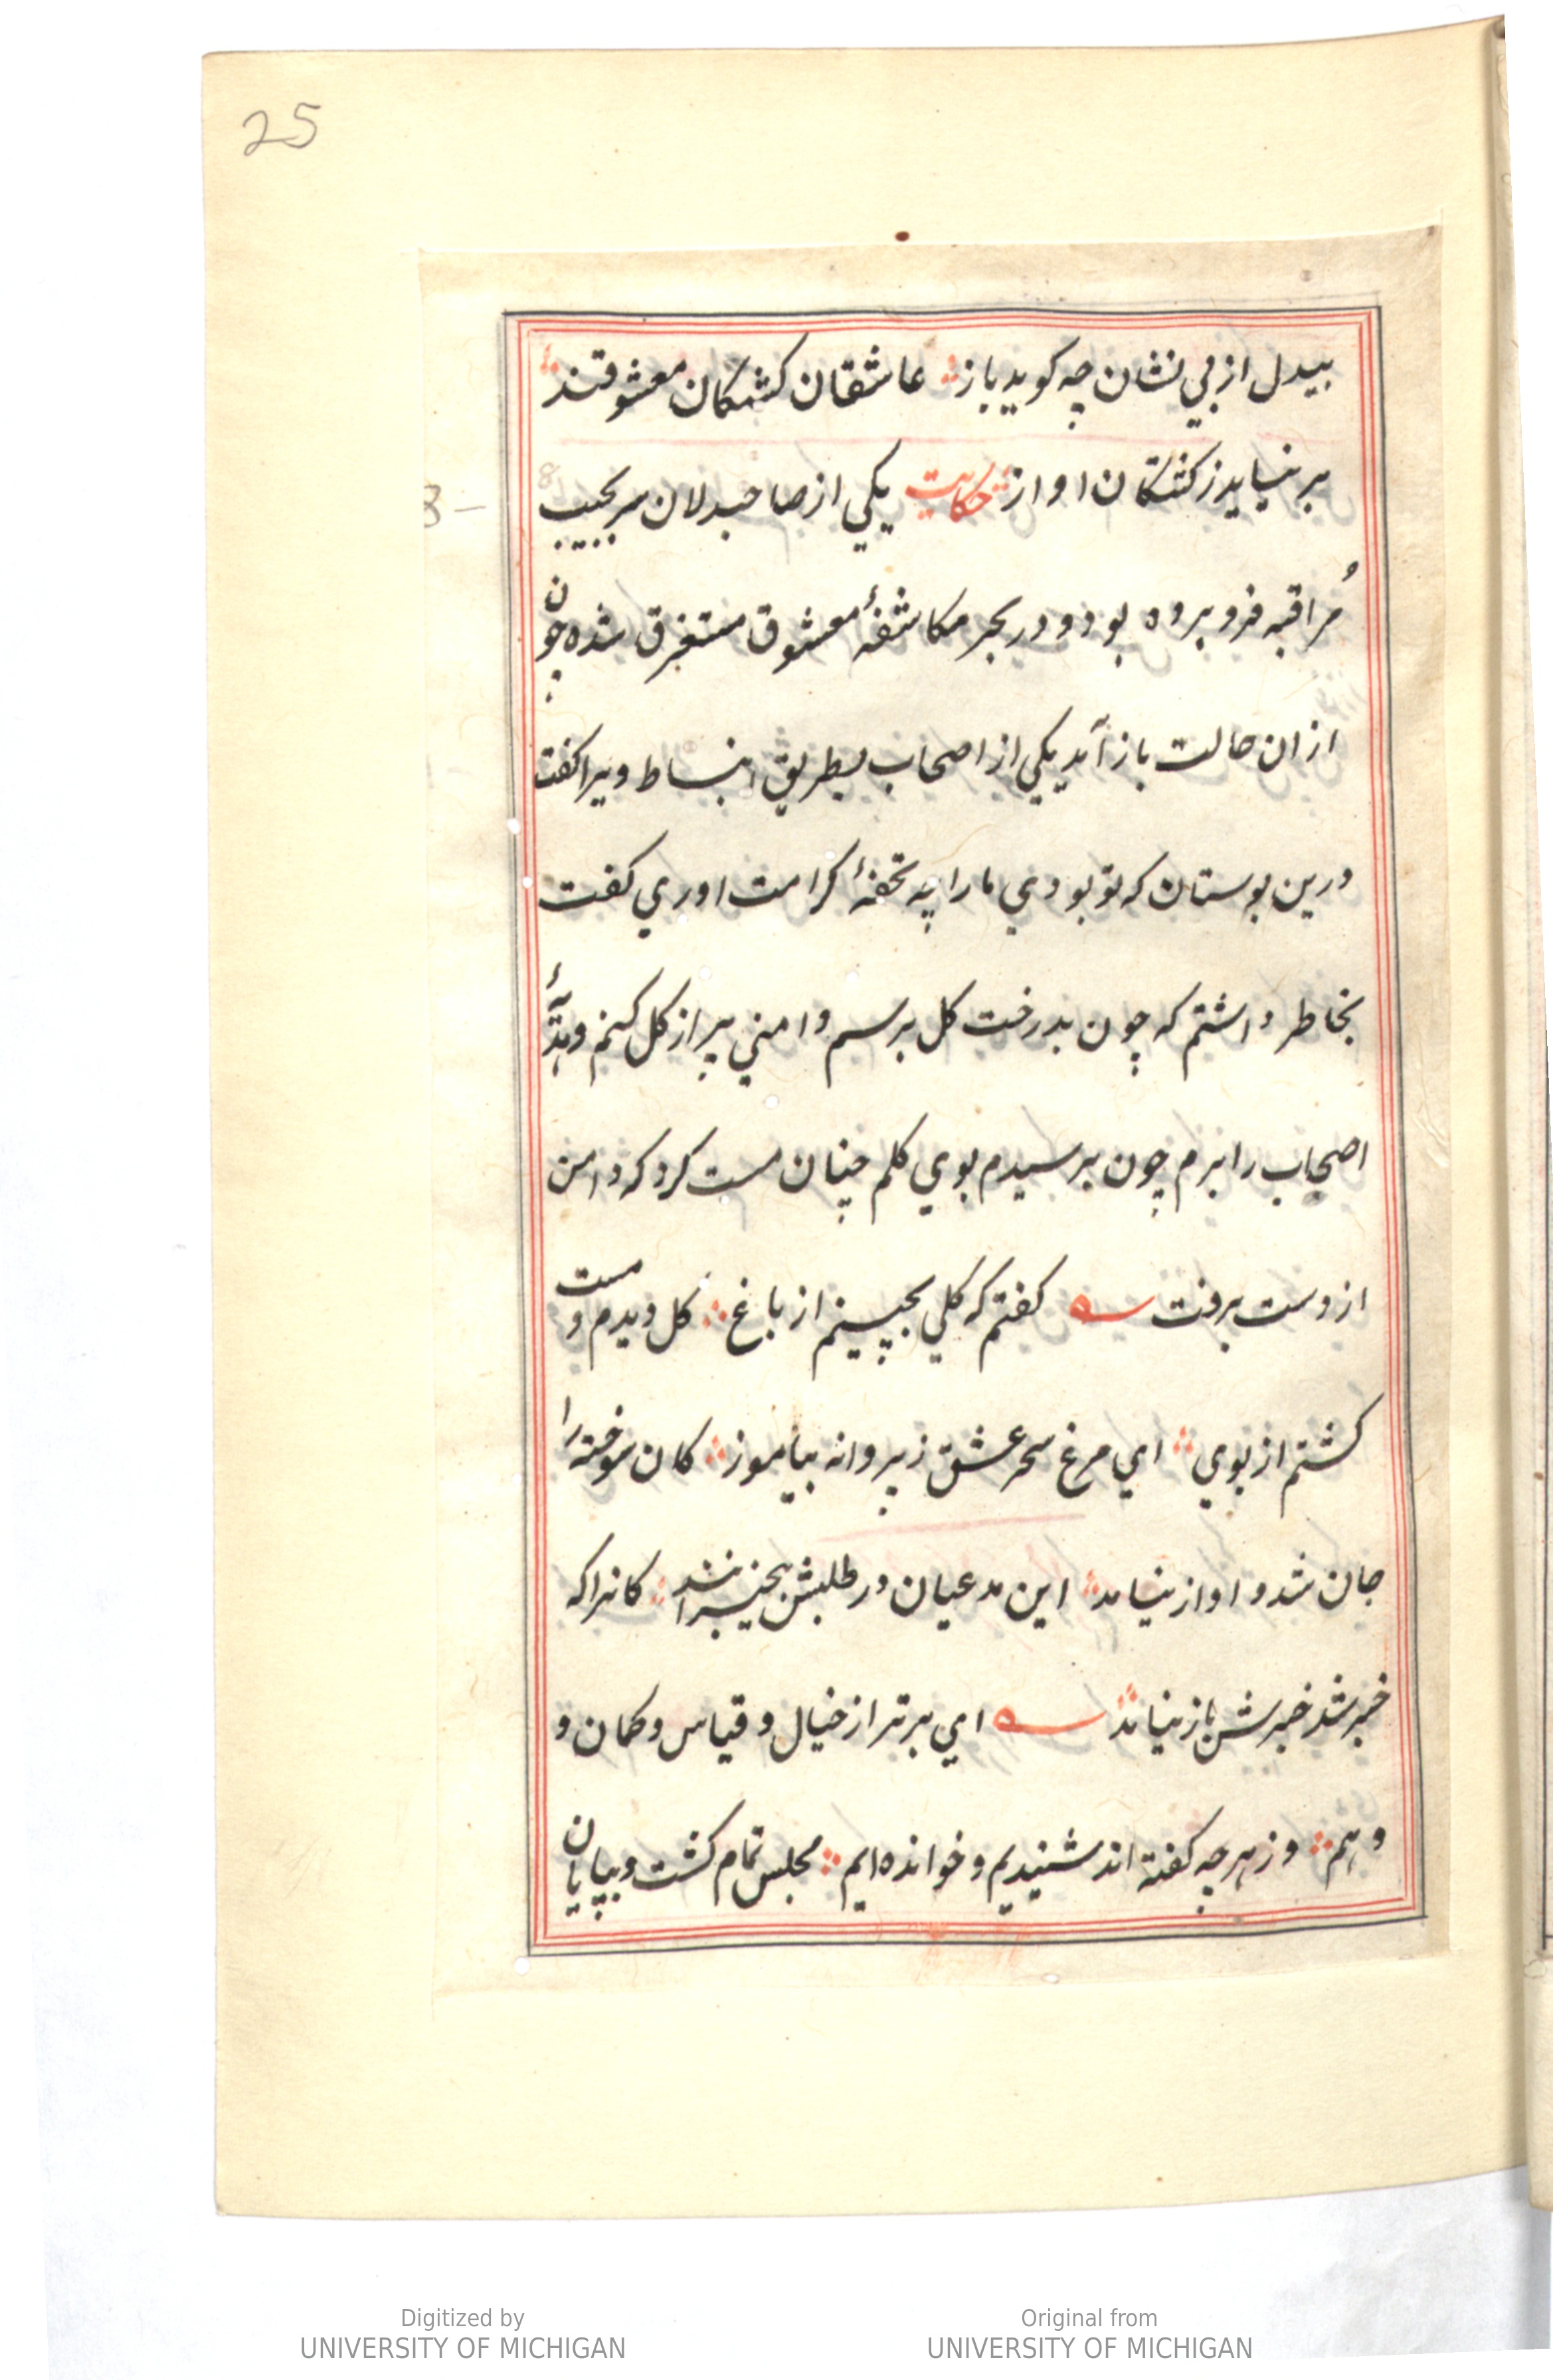 25
بیدل از بي نشان چه كوید باز ؞ عاشقان كشتكان معشوقند ؞
بر نیاید ز كشتكان اواز ؞ حكایت یكي از صاحبدلان سر بجیب
مُراقبه فرو برده بود و در بحر مكاشفهٔ معشوق مستغرق شده چون
از ان حالت باز آمد یكي از اصحاب بطریق انبساط ویرا كفت
درین بوستان كه تو بودي ما را چه تحفهٔ كرامت اوري كفت
بخاطر داشتم كه چون بدرخت كل برسم دامني پر از كل كنم و هدیهٔ
اصحاب را برم چون برسیدم بوي كلم چنان مست كرد كه دامن
از دست برفت كفتم كه كلي بچینم از باغ ؞ كل دیدم و مست
كشتم از بوي ؞ اي مرغ سحر عشق ز پروانه بیاموز ؞ كان سوخته را
جان شد و اواز نیامد ؞ این مدعیان در طلبش بیخبرانند ؞ كانرا كه
خبر شد خبرش باز نیامد ؞ اي برتر از خیال و قیاس و كمان و
وهم ؞ وز هر چه كفته اند شنیدیم و خوانده ایم ؞ مجلس تمام كشت و بپایان
Digitized by
UNIVERSITY OF MICHIGAN
Original from
UNIVERSITY OF MICHIGAN